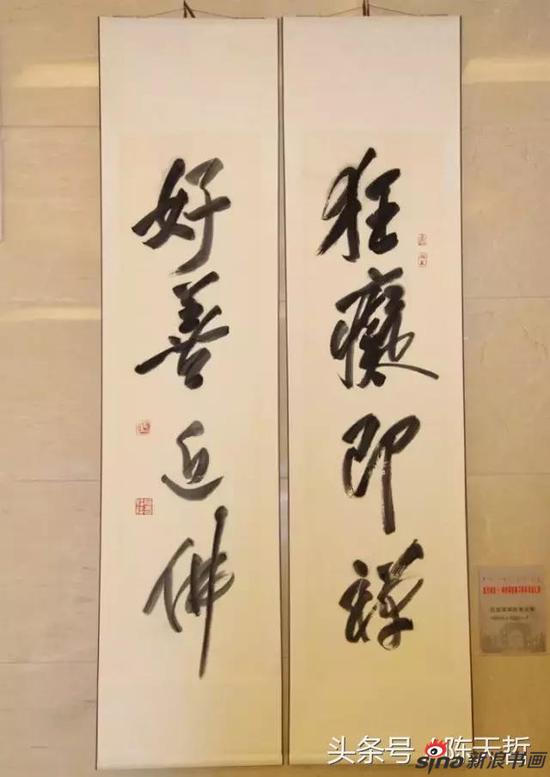 狂 即禪
好善近佛
头条号 / 陈天哲
sina 新浪书画